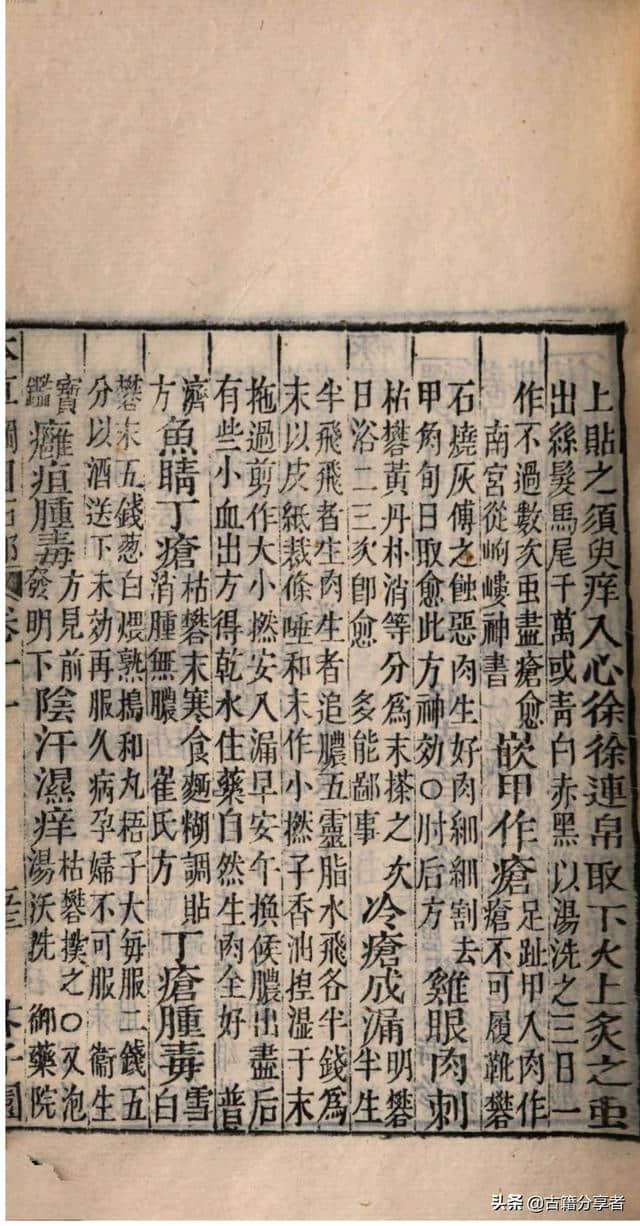 上貼之須臾痒入心徐徐連帛取下火上炙之䖝
出絲髮馬尾千萬或青白赤黑以湯洗之三日一
作不過數次䖝盡瘡愈
南宮從岣嶁神書
嵌甲作瘡
足趾甲入肉作
瘡不可履靴礬
石燒灰傅之蝕惡肉生好肉細細割去
甲角旬日取愈此方神効〇肘后方
雞眼肉刺
枯礬黃丹朴消等分爲末搽之次
日浴二三次卽愈 多能鄙事
冷瘡成漏
明礬
半生
半飛飛者生肉生者追膿五靈脂水飛各半錢爲
末以皮紙裁條唾和末作小撚子香油揑湿于末
拖過剪作大小撚安入漏早安午換候膿出盡后
有些小血出方得乾水住藥自然生肉全好 普
濟
方
魚睛丁瘡
枯礬末寒食麵糊調貼
消腫無膿 崔氏方
丁瘡腫毒
雪
白
礬末五錢葱白煨熟搗和丸梧子大每服二錢五
分以酒送下未効再服久病孕婦不可服 衞生
寶
鑑
癰疽腫毒
方見前
發明下
陰汗濕痒
枯礬撲之〇又泡
湯沃洗 御藥院
头条 @古籍分享者